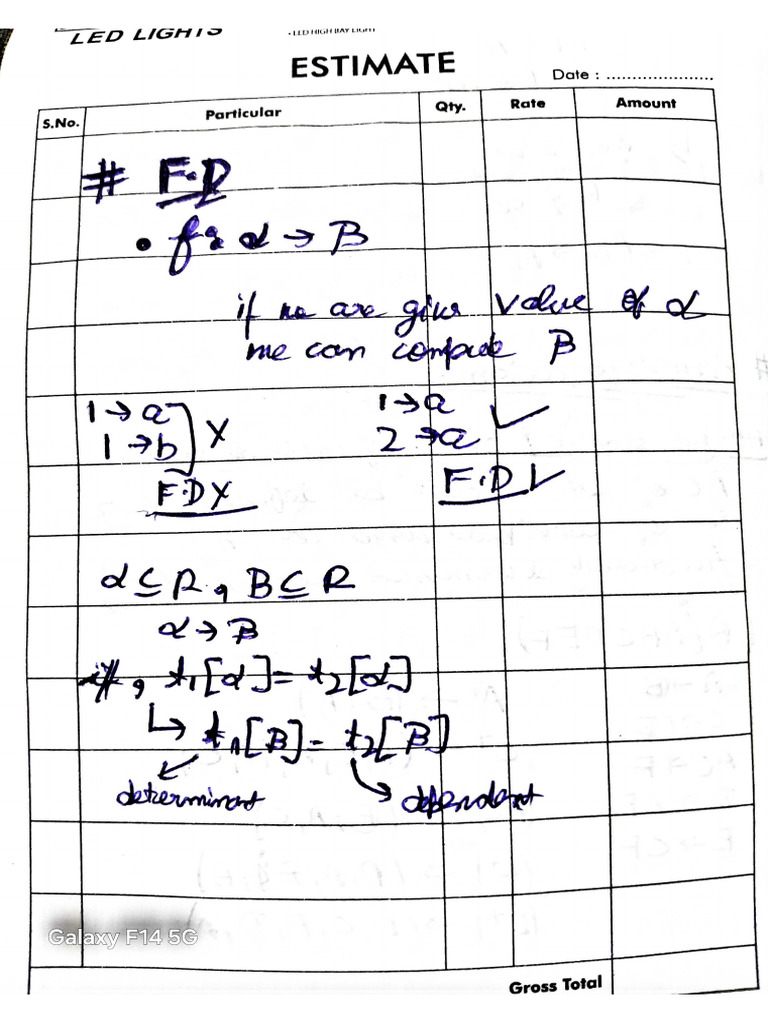 LED LIGHTS
• LED HIGH BAY LIGHT
ESTIMATE
Date : ......................
S.No. Particular Qty. Rate Amount
# F.D
• for α → B
if we are give value of α
we can compute B
1 → a 1 → a ✓
1 → b } X 2 → a
F.D X F.D ✓
α ⊆ R, B ⊆ R
α → B
if, t₁[α] = t₂[α]
↳ t₁[B] = t₂[B]
determinant dependent
Galaxy F14 5G
Gross Total